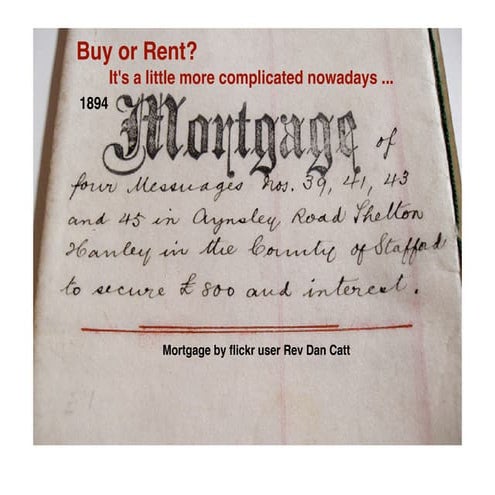 Buy or Rent?
It's a little more complicated nowadays ...
1894
Mortgage of
four Messuages Nos. 39, 41, 43
and 45 in Aynsley Road Shelton
Hanley in the County of Stafford
to secure £800 and interest.
Mortgage by flickr user Rev Dan Catt